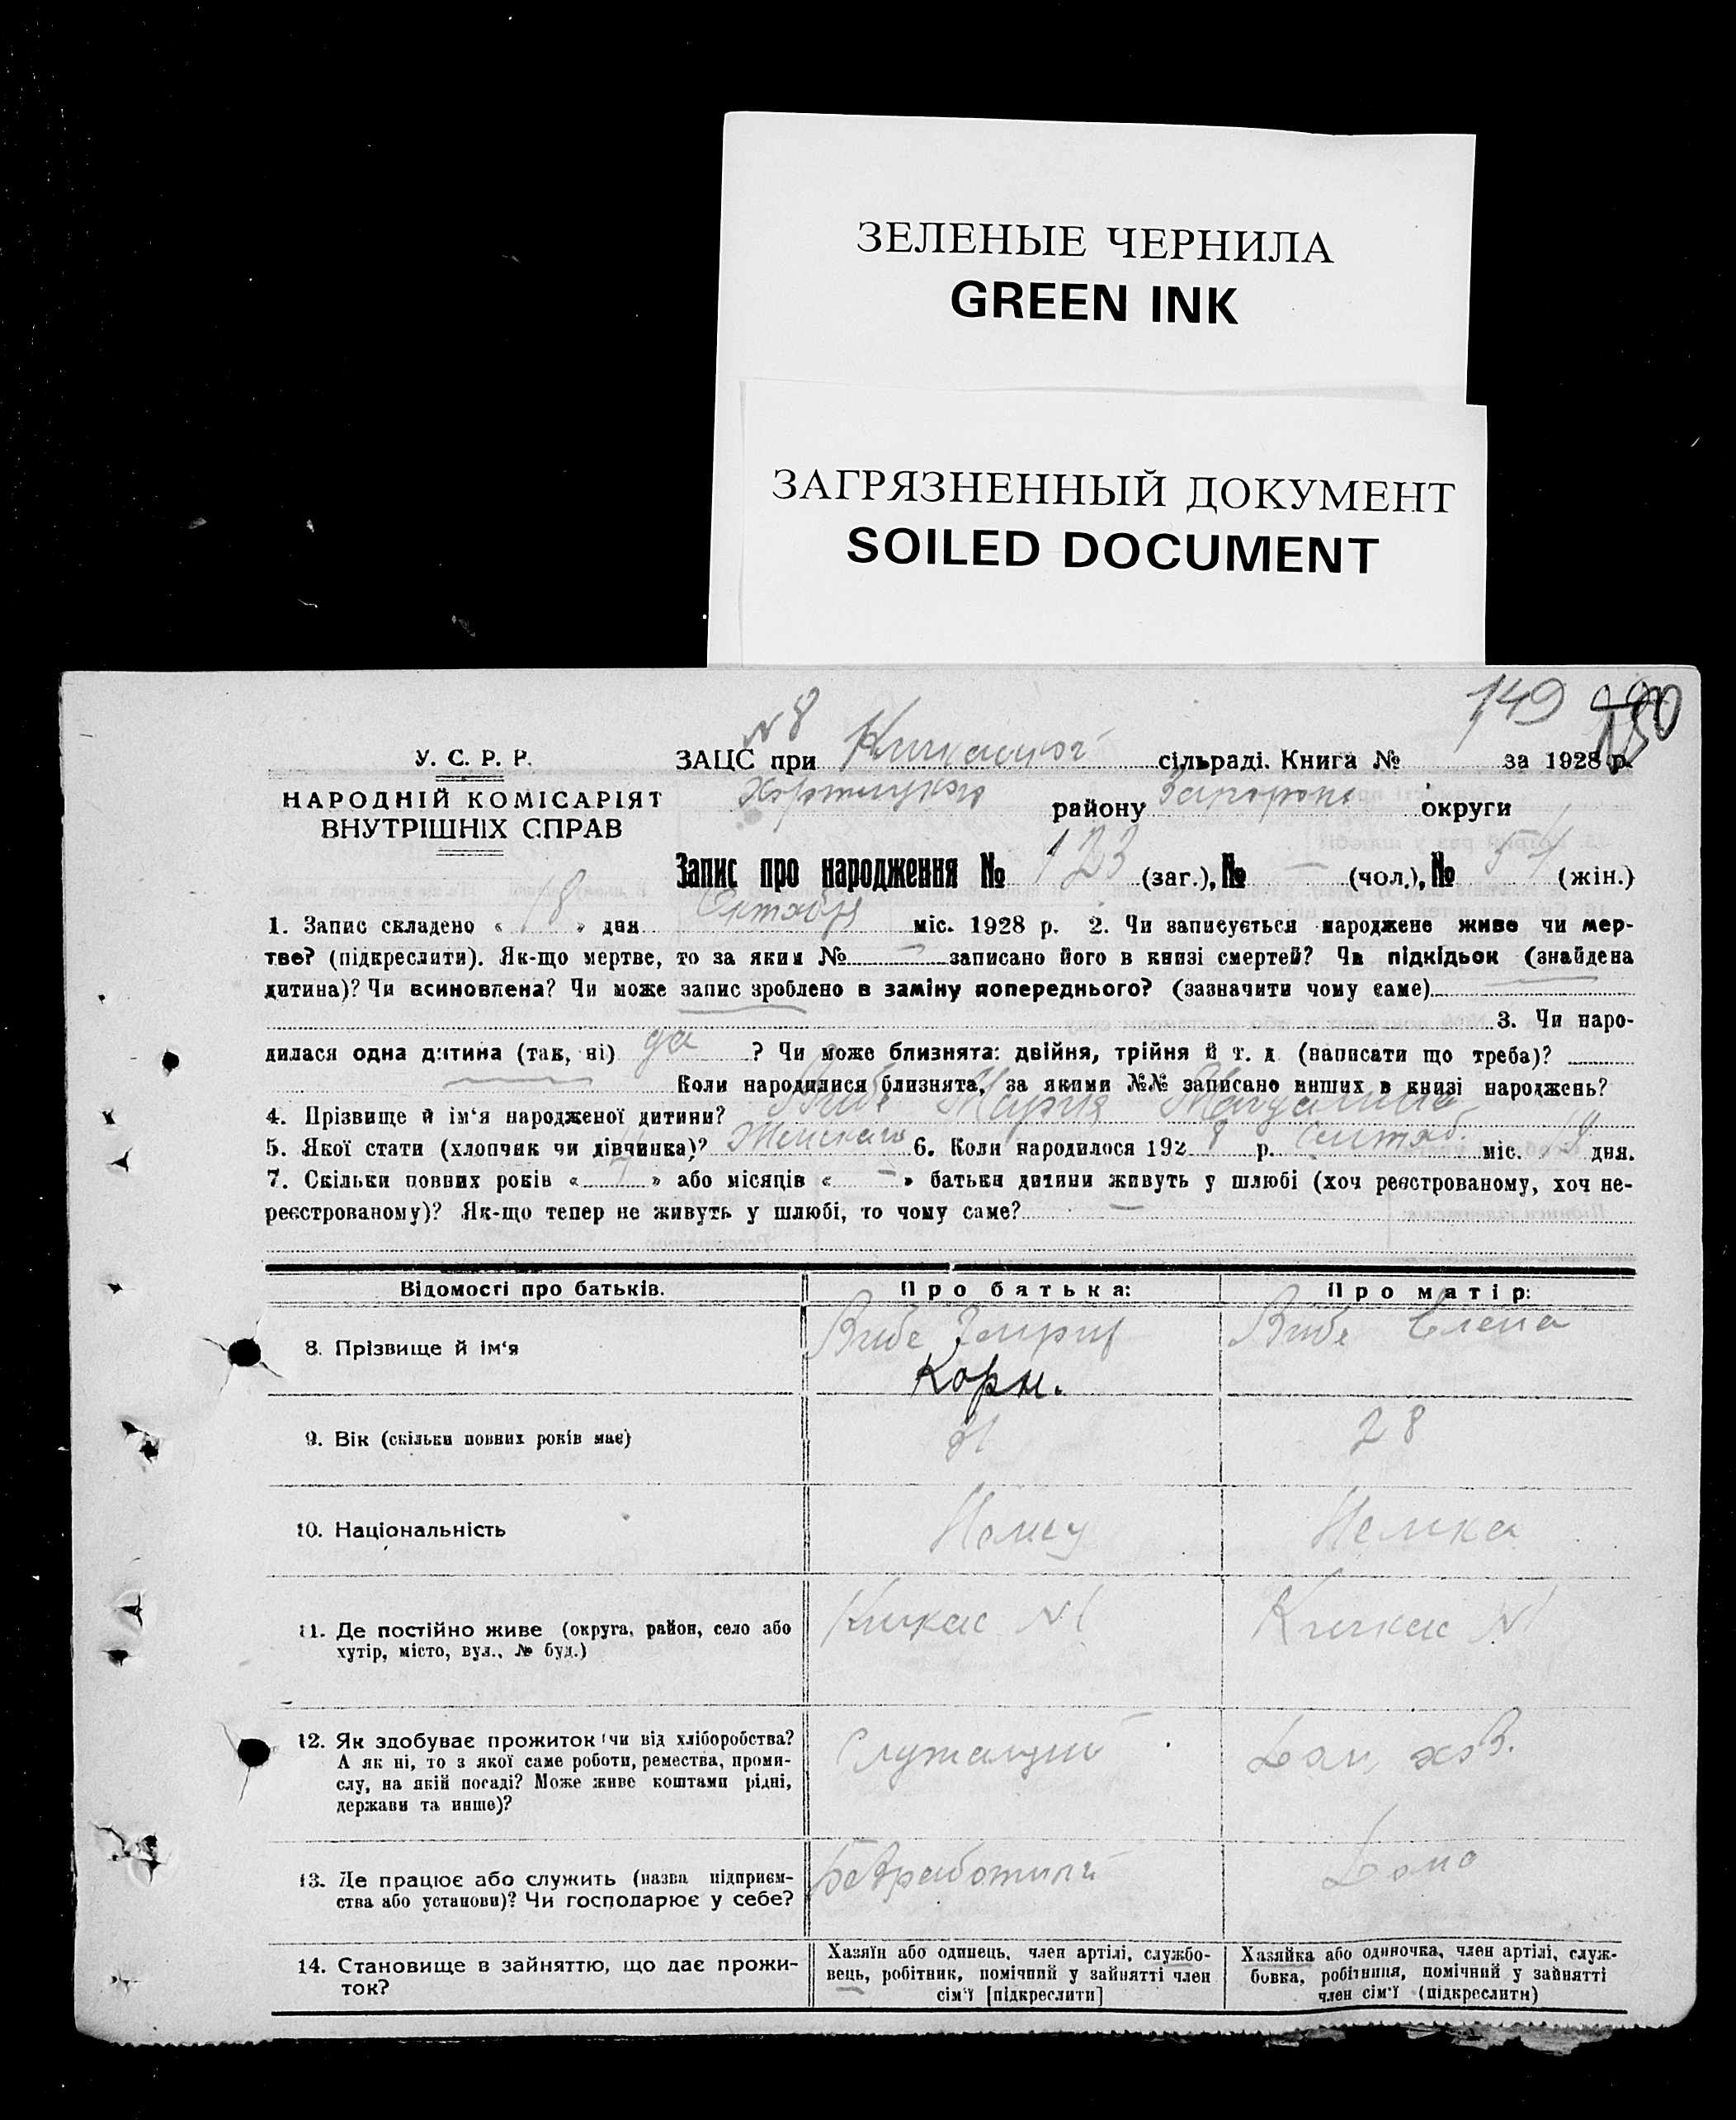 ЗЕЛЕНЫЕ ЧЕРНИЛА
GREEN INK
ЗАГРЯЗНЕННЫЙ ДОКУМЕНТ
SOILED DOCUMENT
149
N 8
У. С. Р. Р.
ЗАЦС при Кичкаской сільраді. Книга № за 1928 р.
НАРОДНІЙ КОМІСАРІЯТ
ВНУТРІШНІХ СПРАВ
Хортицкого району Запорож округи
Запис про народження № 123 (заг.), № — (чол.), № 51 (жін.)
1. Запис складено « 18 » дня Октября міс. 1928 р. 2. Чи записується народжене живе чи мер-
тве? (підкреслити). Як-що мертве, то за яким № — записано його в книзі смертей? Чи підкідьок (знайдена
дитина)? Чи всиновлена? Чи може запис зроблено в заміну попереднього? (зазначити чому саме)
3. Чи наро-
дилася одна дитина (так, ні) да ? Чи може близнята: двійня, трійня й т. д (написати що треба)?
Коли народилися близнята, за якими №№ записано инших в книзі народжень?
4. Прізвище й ім'я народженої дитини? Вибе Мария Магдалина
5. Якої стати (хлопчик чи дівчинка)? Женского 6. Коли народилося 1928 р. Сентяб. міс. дня.
7. Скільки повних років « » або місяців « — » батьки дитини живуть у шлюбі (хоч реєстрованому, хоч не-
реєстрованому)? Як-що тепер не живуть у шлюбі, то чому саме? —
Відомості про батьків.
Про батька:
Про матір:
8. Прізвище й ім'я
Вибе Генрих
Корн.
Вибе Елена
9. Вік (скільки повних років має)
31
28
10. Національність
Немец
Немка
11. Де постійно живе (округа, район, село або
хутір, місто, вул., № буд.)
Кичкас N 1
Кичкас N 1
12. Як здобуває прожиток (чи від хліборобства?
А як ні, то з якої саме роботи, ремества, проми-
слу, на якій посаді? Може живе коштами рідні,
держави та инше)?
Служащий
Дом. хоз.
13. Де працює або служить (назва підприєм-
ства або установи)? Чи господарює у себе?
Безработный
Дома
14. Становище в зайняттю, що дає прожи-
ток?
Хазяїн або одинець, член артілі, службо-
вець, робітник, помічний у зайнятті член
сім'ї [підкреслити]
Хазяйка або одиночка, член артілі, служ-
бовка, робітниця, помічний у зайнятті
член сім'ї (підкреслити)